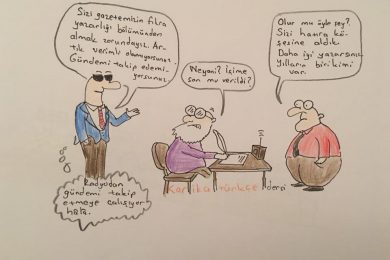 Sizi gazetemizin fıkra
yazarlığı bölümünden
almak zorundayız. Ar-
tık verimli olamıyorsunuz.
Gündemi takip edemi-
yorsunuz.
Neyani? İşime
son mu verildi?
Olur mu öyle şey?
Sizi hatıra kö-
şesine aldık.
Daha iyi yazarsınız.
Yılların birikimi
var.
Radyodan
gündemi takip
etmeye çalışıyor
hâlâ.
Karnika türkçe dergi